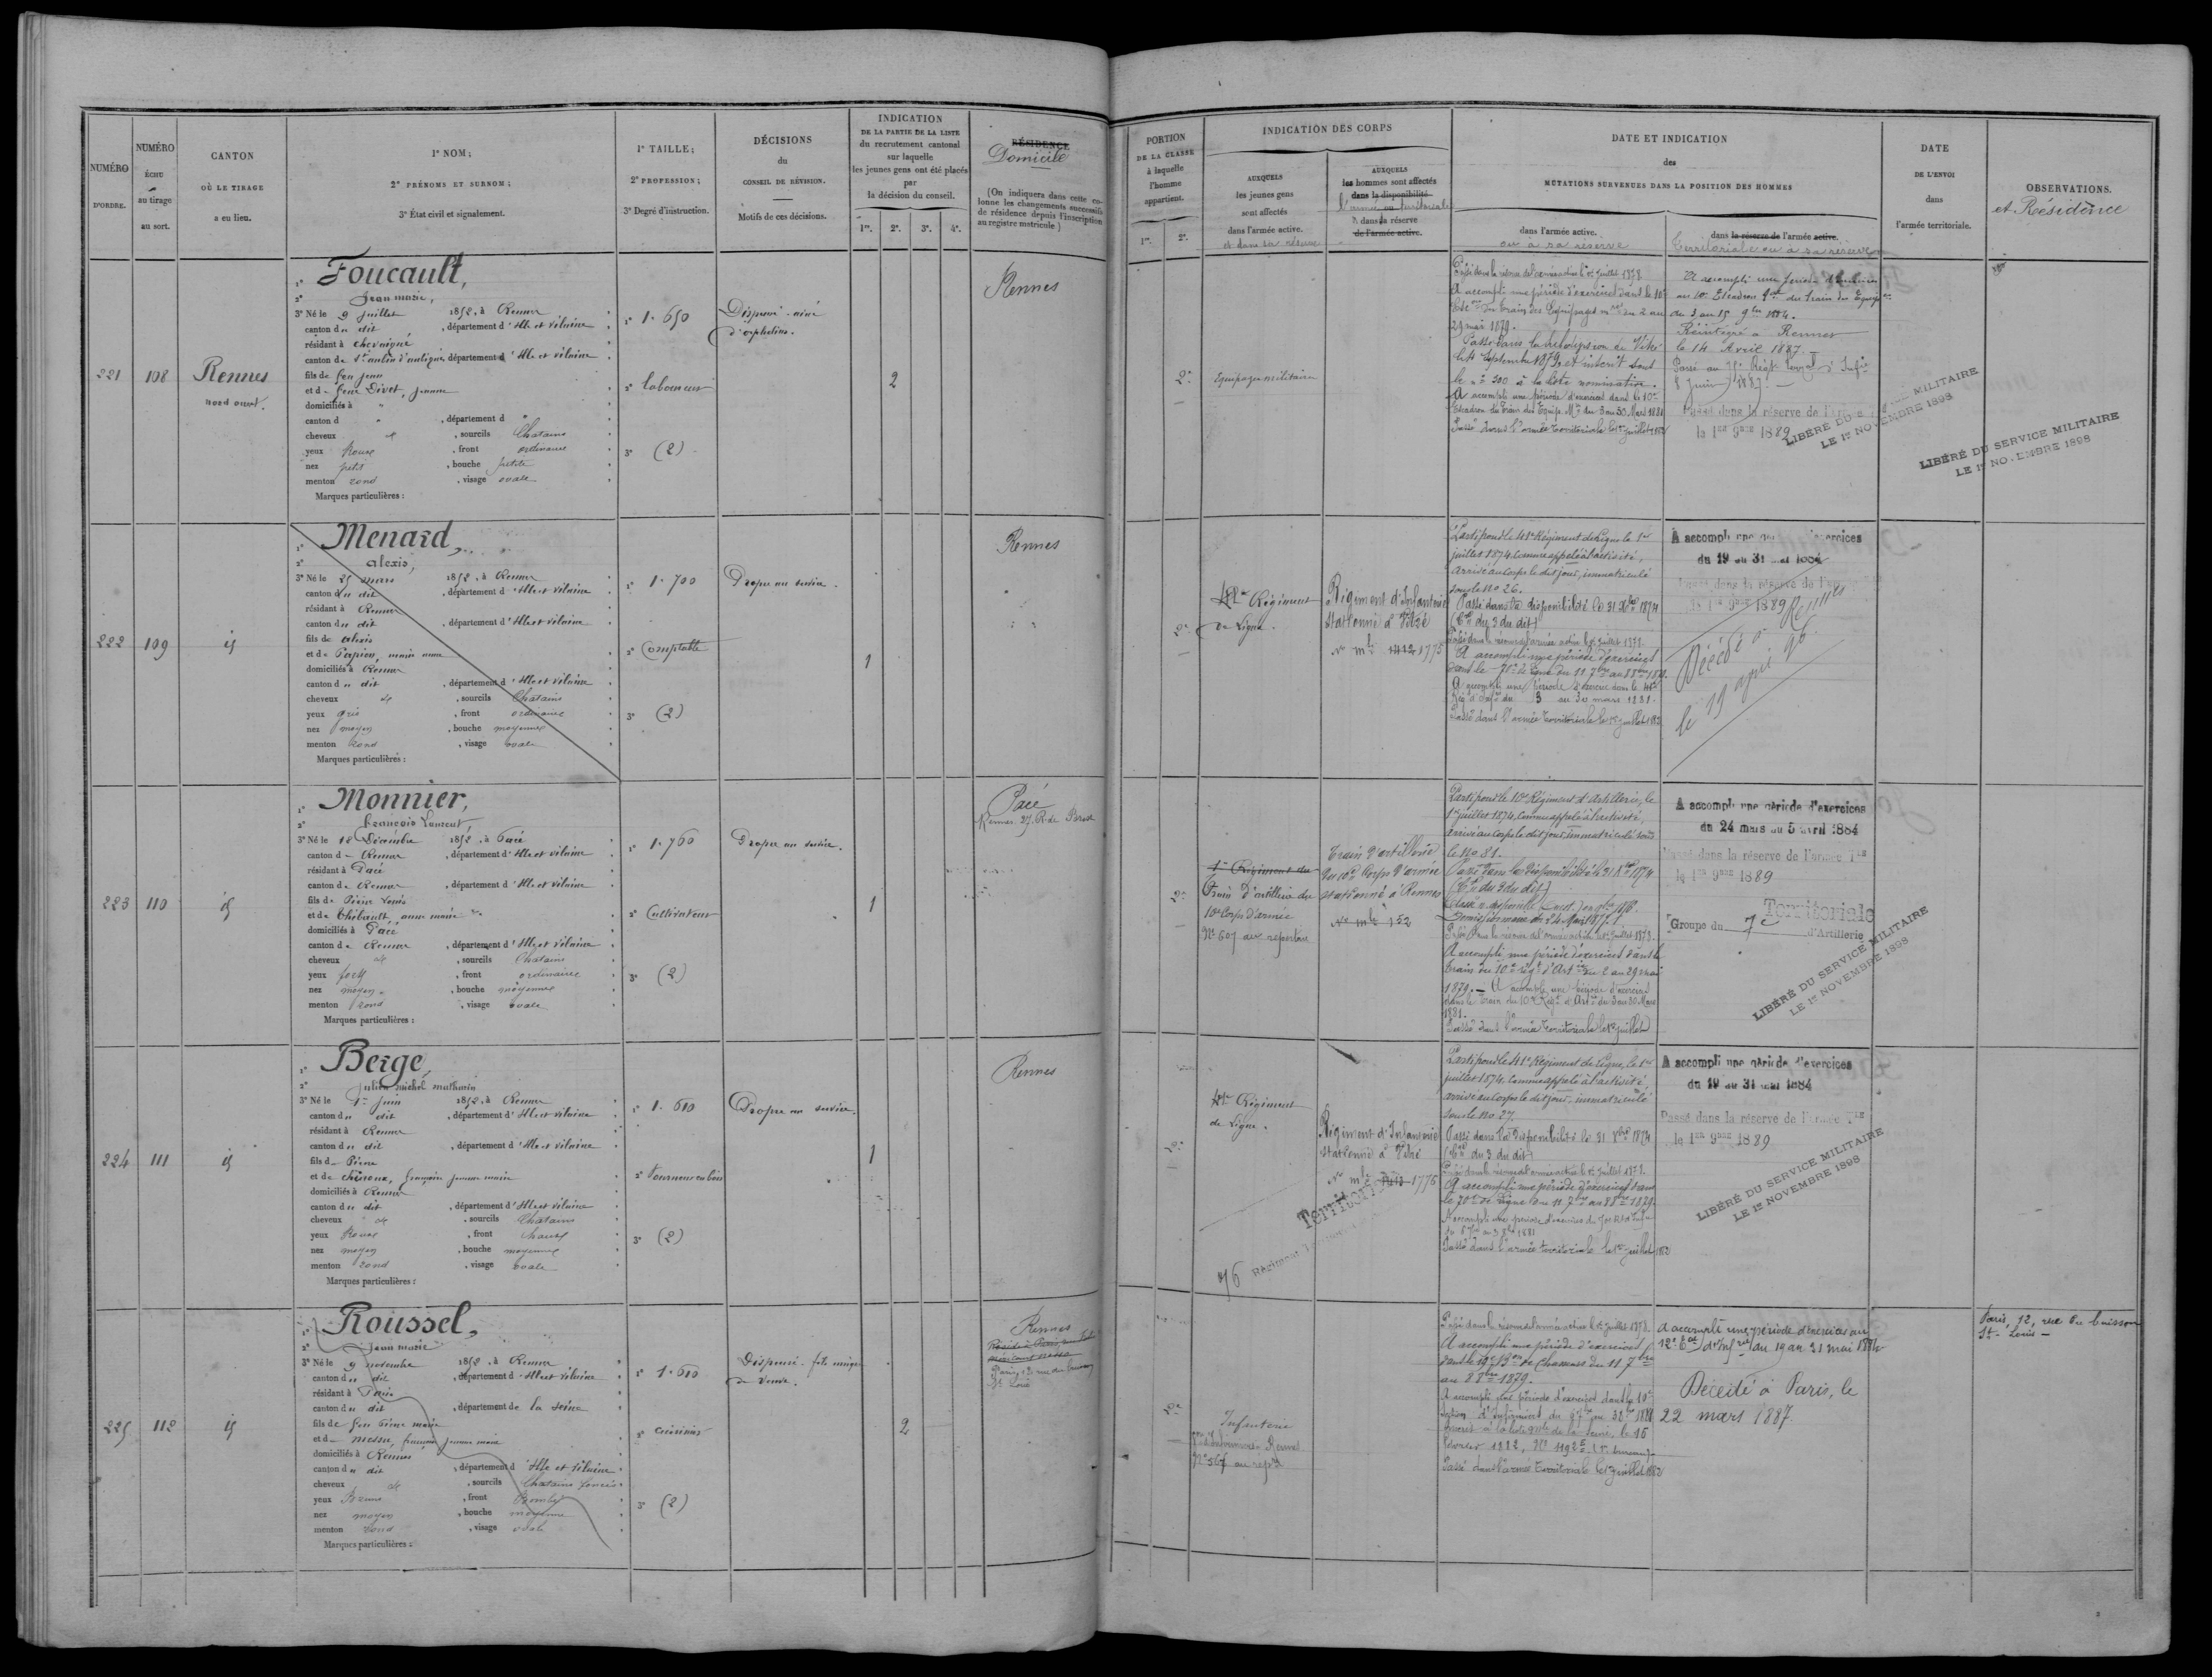 NUMÉRO
D'ORDRE.
NUMÉRO
ÉCHU
au tirage
au sort.
CANTON
OÙ LE TIRAGE
a eu lieu.
1° NOM;
2° PRÉNOMS ET SURNOM;
3° État civil et signalement.
1° TAILLE;
2° PROFESSION;
3° Degré d'instruction.
DÉCISIONS
du
CONSEIL DE RÉVISION.
Motifs de ces décisions.
INDICATION
DE LA PARTIE DE LA LISTE
du recrutement cantonal
sur laquelle
les jeunes gens ont été placés
par
la décision du conseil.
1re. 2e. 3e. 4e.
RÉSIDENCE
Domicile
(On indiquera dans cette co-
lonne les changements successifs
de résidence depuis l'inscription
au registre matricule)
PORTION
DE LA CLASSE
à laquelle
l'homme
appartient.
1re. 2e.
INDICATION DES CORPS
AUXQUELS
les jeunes gens
sont affectés
dans l'armée active.
et dans sa réserve
AUXQUELS
les hommes sont affectés
dans la disponibilité
l'armée territoriale
dans la réserve
de l'armée active.
DATE ET INDICATION
des
MUTATIONS SURVENUES DANS LA POSITION DES HOMMES
dans l'armée active.
ou à sa réserve
dans la réserve de l'armée active.
Territoriale ou à sa réserve
DATE
DE L'ENVOI
dans
l'armée territoriale.
OBSERVATIONS.
et Résidence
221
108
Rennes
nord ouest.
1° Foucault,
2° Jean marie,
3° Né le 9 juillet 1852, à Rennes
canton du dit, département d'Ille et vilaine
résidant à chevaigné
canton de St aubin d'aubigné, département d'Ille et vilaine
fils de feu jean
et de feue Divet, jeanne
domiciliés à "
canton d ", département d "
cheveux et, sourcils Chatains
yeux Roux, front ordinaire
nez petit, bouche petite
menton rond, visage ovale
Marques particulières :
1° 1. 650
2° laboureur
3° (2)
Dispensé - aîné
d'orphelins.
2
Rennes
2e
Equipages militaires
Passé dans la réserve de l'armée active le 1er juillet 1878
A accompli une période d'exercices dans le 10e
Esc. du train des Equipages mres du 2 au
29 mai 1879.
Passé dans la subdivision de Vitré
le 4 septembre 1879, et inscrit sous
le n° 300 à la liste nominative.
A accompli une période d'exercices dans le 10e
Escadron du Train des Equip. Mres du 3 au 30 Mars 1881
Passé dans l'armée territoriale le 1er juillet 1882
A accompli une période d'exercices
au 10e Escadron du train des Equip.
du 3 au 15 9bre 1884.
Réintégré à Rennes
le 14 Avril 1887.
Passé au 76e Régt Terral d'Infie
8 juin 1887.
Passé dans la réserve de l'armée
le 1er 9bre 1889
LIBÉRÉ DU SERVICE MILITAIRE
LE 1er NOVEMBRE 1898
LIBÉRÉ DU SERVICE MILITAIRE
LE 1er NOVEMBRE 1898
222
109
id
1° Menard,
2° alexis,
3° Né le 25 mars 1852, à Rennes
canton du dit, département d'Ille et vilaine
résidant à Rennes
canton du dit, département d'Ille et vilaine
fils de alexis
et de Papion, marie anne
domiciliés à Rennes
canton du dit, département d'Ille et vilaine
cheveux et, sourcils Chatains
yeux gris, front ordinaire
nez moyen, bouche moyenne
menton rond, visage ovale
Marques particulières :
1° 1. 700
2° Comptable
3° (2)
Propre au service.
1
Rennes
2e
41e Régiment
de Ligne.
Régiment d'Infanterie
stationné à Vitré
n° mle 1412 1775
Parti pour le 41e Régiment de Ligne le 1er
juillet 1874. Comme appelé à l'activité,
arrivé au Corps le dit jour, immatriculé
sous le no 26.
Passé dans la disponibilité le 31 Xbre 1874
(Ctre du 3 du dit)
Passé dans la réserve de l'armée active le 1er juillet 1878.
A accompli une période d'exercices
dans le 70e de Ligne du 11 7bre au 8 8bre 1879.
A accompli une période d'exercice dans le 41e
Rég. d'Infie du 3 au 30 mars 1881.
Passé dans l'armée territoriale le 1er juillet 1882
A accompli une période d'exercices
du 19 au 31 mai 1884
Passé dans la réserve de l'armée
le 1er 9bre 1889
Décédé à Rennes
le 19 avril 96.
223
110
id
1° Monnier,
2° François Laurent
3° Né le 18 Décembre 1852, à Pacé
canton de Rennes, département d'Ille et vilaine
résidant à Pacé
canton de Rennes, département d'Ille et vilaine
fils de Pierre Louis
et de Thébault, anne marie
domiciliés à Pacé
canton de Rennes, département d'Ille et vilaine
cheveux et, sourcils Chatains
front ordinaire
nez moyen, bouche moyenne
menton rond, visage ovale
Marques particulières :
1° 1. 760
2° Cultivateur
3° (2)
Propre au service.
1
Pacé
Rennes. 27. R. de Paris
2e
1er Régiment du
Train d'artillerie du
10e Corps d'armée
N° 607 au répertoire
Train d'artillerie
du 10e Corps d'armée
stationné à Rennes
n° mle 152
Parti pour le 10e Régiment d'Artillerie, le
1er juillet 1874. Comme appelé à l'activité,
arrivé au Corps le dit jour, immatriculé sous
le no 81.
Passé dans la disponibilité le 31 Xbre 1874
(Ctre du 3 du dit)
Passé dans la réserve de l'armée active le 1er juillet 1878.
A accompli une période d'exercices dans le
train du 10e régt d'Artie du 2 au 29 mai
1879. — A accompli une période d'exercices
dans le Train du 10e Régt d'Artie du 3 au 30 Mars
1881.
Passé dans l'armée territoriale le 1er juillet
A accompli une période d'exercices
du 24 mars au 5 avril 1884
Passé dans la réserve de l'armée Tle
le 1er 9bre 1889
Territoriale
Groupe du 7e d'Artillerie
LIBÉRÉ DU SERVICE MILITAIRE
LE 1er NOVEMBRE 1898
224
111
id
1° Berge,
2° Julien michel mathurin
3° Né le 1er juin 1852, à Rennes
canton du dit, département d'Ille et vilaine
résidant à Rennes
canton du dit, département d'Ille et vilaine
fils de Pierre
domiciliés à Rennes
canton du dit, département d'Ille et vilaine
cheveux et, sourcils Chatains
yeux Roux, front haut
nez moyen, bouche moyenne
menton rond, visage ovale
Marques particulières :
1° 1. 610
2° Tourneur en bois
3° (2)
Propre au service.
1
Rennes
2e
41e Régiment
de Ligne.
Régiment d'Infanterie
stationné à Vitré
n° mle 1776
Territorial
76 Régiment Territorial
Parti pour le 41e Régiment de Ligne, le 1er
juillet 1874. Comme appelé à l'activité
arrivé au Corps le dit jour, immatriculé
sous le no. 27
Passé dans la Disponibilité le 31 Xbre 1874
(Ctre du 3 du dit)
Passé dans la réserve de l'armée active le 1er juillet 1878.
A accompli une période d'exercices dans
le 70e de Ligne du 11 7bre au 8 8bre 1879.
Passé dans l'armée territoriale le 1er juillet 1882
A accompli une période d'exercices
du 19 au 31 mai 1884
Passé dans la réserve de l'armée Tle
le 1er 9bre 1889
LIBÉRÉ DU SERVICE MILITAIRE
LE 1er NOVEMBRE 1898
225
112
id
1° Roussel,
2° Jean marie
3° Né le 9 novembre 1852, à Rennes
canton du dit, département d'Ille et vilaine
résidant à Paris
canton du dit, département de la Seine
fils de feu Pierre marie
domiciliés à Rennes
canton du dit, département d'Ille et Vilaine
cheveux et, sourcils Chatains foncés
yeux Bruns, front Bombé
nez moyen, bouche moyenne
menton rond, visage ovale
Marques particulières :
1° 1. 610
2° cuisinier
3° (2)
Dispensé - fils unique
de veuve.
2
Rennes
Paris, 12 rue du buisson
St Louis
2e
Infanterie
N° 567 au repre
Passé dans la réserve de l'armée active le 1er juillet 1878.
A accompli une période d'exercices
dans le 19e Bon de Chasseurs du 11 7bre
au 8 8bre 1879.
A accompli une période d'exercices dans la 10e
section d'Infirmiers
Passé dans l'armée territoriale le 1er juillet 1882
A accompli une période d'exercices au
du 19 au 31 mai 1884
Décédé à Paris, le
22 mars 1887.
Paris, 12, rue du buisson
St- Louis -